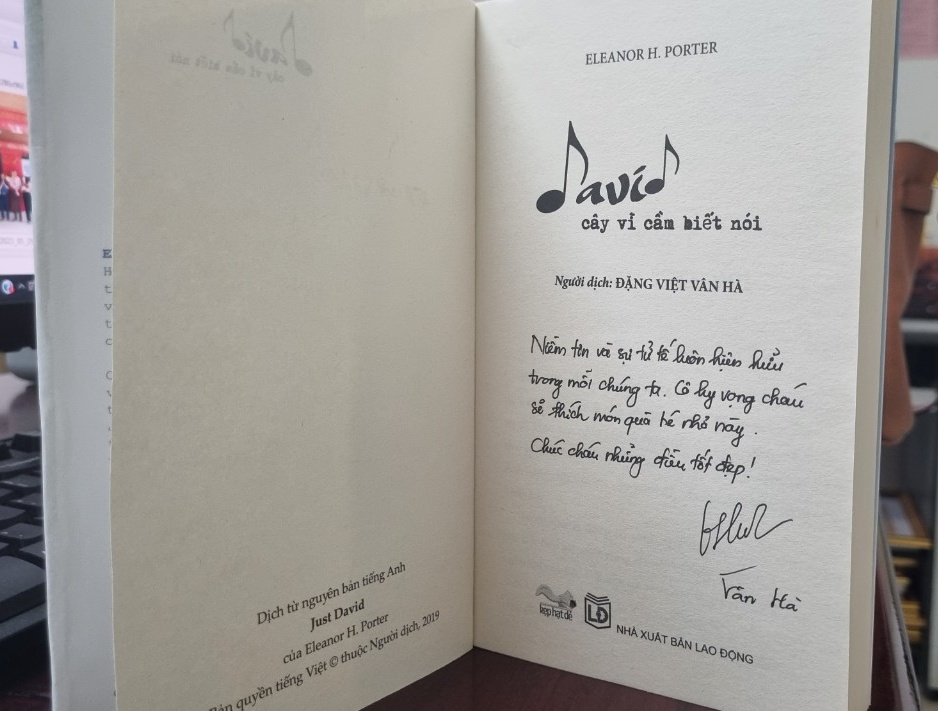 Dịch từ nguyên bản tiếng Anh
Just David
của Eleanor H. Porter
Bản quyền tiếng Việt © thuộc Người dịch, 2019
ELEANOR H. PORTER
David
cây vĩ cầm biết nói
Người dịch: ĐẶNG VIỆT VÂN HÀ
Niềm tin và sự tử tế luôn hiện hữu
trong mỗi chúng ta. Cô hy vọng cháu
sẽ thích món quà bé nhỏ này.
Chúc cháu những điều tốt đẹp!
Vân Hà
kẹp hạt dẻ
LĐ
NHÀ XUẤT BẢN LAO ĐỘNG